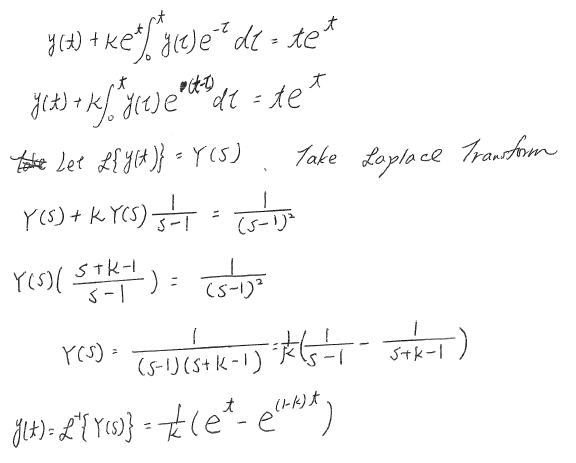 y(t) + ke^t ∫_0^t y(τ)e^{-τ} dτ = te^t
y(t) + k∫_0^t y(τ)e^{(t-τ)} dτ = te^t
Let ℒ{y(t)} = Y(s). Take Laplace Transform
Y(s) + k Y(s) \frac{1}{s-1} = \frac{1}{(s-1)^2}
Y(s)( \frac{s+k-1}{s-1} ) = \frac{1}{(s-1)^2}
Y(s) = \frac{1}{(s-1)(s+k-1)} = \frac{1}{k}( \frac{1}{s-1} - \frac{1}{s+k-1} )
y(t) = ℒ^{-1}{Y(s)} = \frac{1}{k}(e^t - e^{(1-k)t})